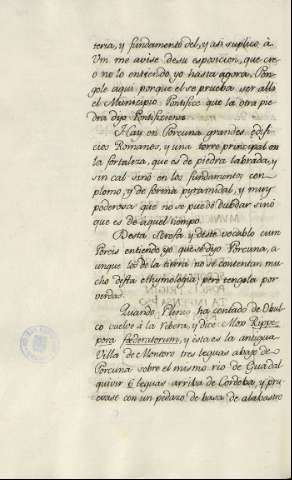 teria, y fundamento del, y asi suplico à
Vm me avise desu esposicion, que cre
o no lo entiendo yo hasta agora. Pon
gole aqui porque el se prueba ser alli
el Municipio Pontifico que la otra pie
dra dijo Pontificiense
Hay en Porcuna grandes edifi
cios Romanos, y una torre principal en
la fortaleza, que es de piedra labrada, y
sin cal sinò en los fundamentos con
plomo, y de forma pyramidal, y muy
poderosa que no se puede dubdar sinò
que es de aquel tiempo.
Desta y deste vocablo cum
Porcis entiendo yo que se dijo Porcuna, a
unque los de la tierra no se contentan mu
cho desta ethymologia pero tengola por
verdad.
Quando Plinio ha contado de Obul
co vuelve à la ribera, y dice Mox Ripe
pora fœderatorum, y esta es la antigua
Villa de Montoro tres leguas abajo de
Porcuna sobre el mismo rio de Guadal
quivir 6 leguas arriba de Cordoba, y pru
evase con un pedazo de basa de alabastro